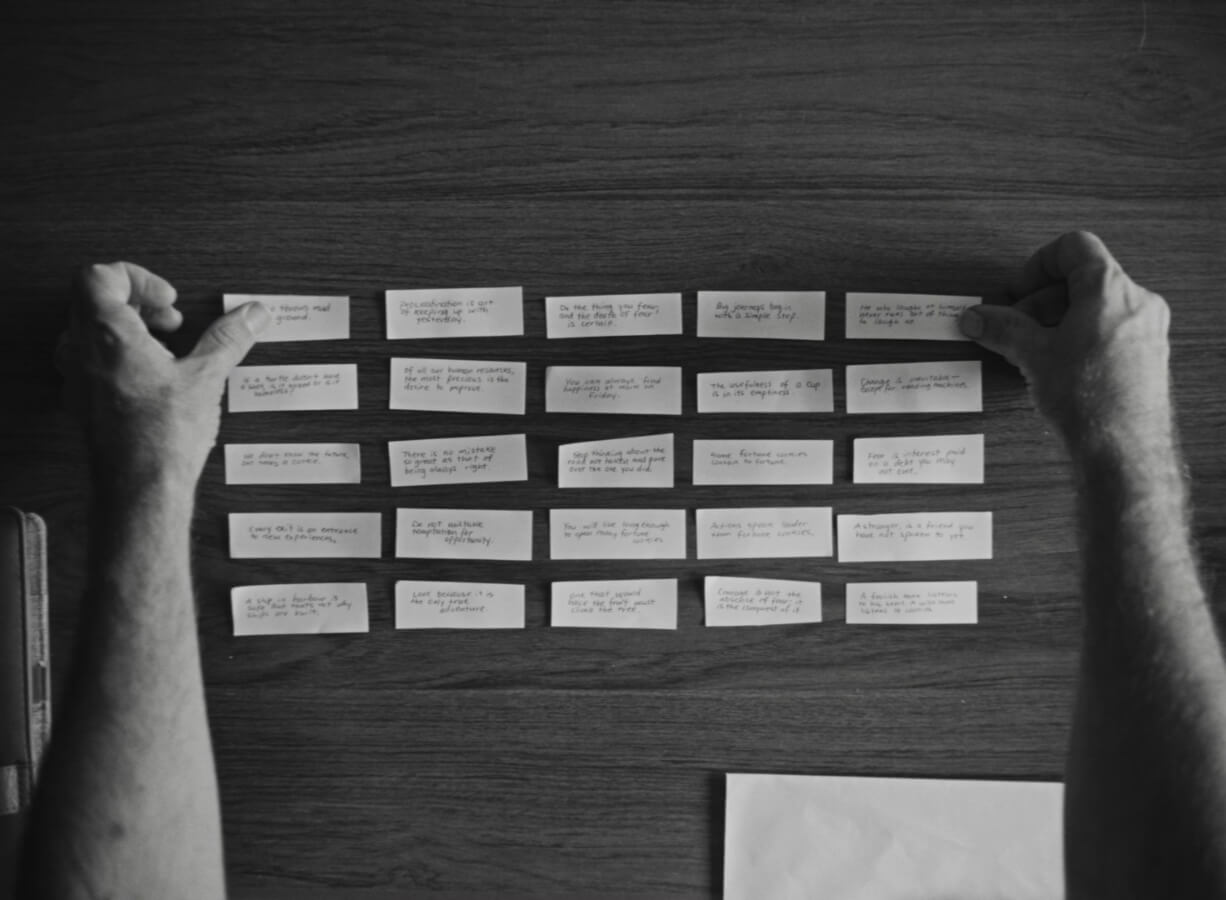 ground.
Procrastination is art
of keeping up with
yesterday.
Do the thing you fear,
and the death of fear
is certain.
Big journeys begin
with a simple step.
He who laughs at himself
never runs out of things
to laugh at.
If a turtle doesn't have
a shell, is it naked or is it
homeless?
Of all our human resources,
the most precious is the
desire to improve.
You can always find
happiness at work on
Friday.
The usefulness of a cup
is in its emptiness.
Change is inevitable—
except for vending machines.
We don't know the future,
but here's a cookie.
There is no mistake
so great as that of
being always right.
Stop thinking about the
road not taken and pave
over the one you did.
Some fortune cookies
contain no fortune.
Fear is interest paid
on a debt you may
not owe.
Every exit is an entrance
to new experiences.
Do not mistake
temptation for
opportunity.
You will live long enough
to open many fortune
cookies.
Actions speak louder
than fortune cookies.
A stranger, is a friend you
have not spoken to yet.
A ship in harbour is
safe but that's not why
ships are built.
Love because it is
the only true
adventure.
One that would
have the fruit must
climb the tree.
Courage is not the
absence of fear; it
is the conquest of it.
A foolish man listens
to his heart. A wise man
listens to cookies.